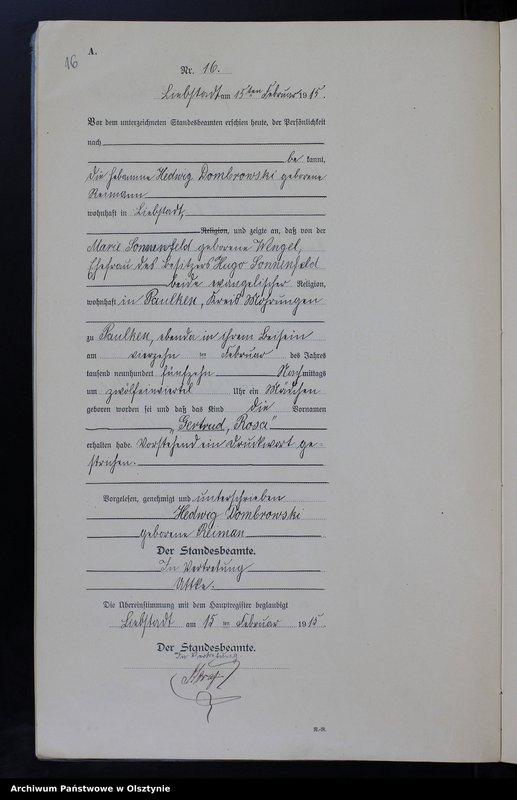 16
A.
Nr. 16.
Liebstadt am 15ten Februar 1915.
Vor dem unterzeichneten Standesbeamten erschien heute, der Persönlichkeit
nach
be kannt,
die Hebamme Hedwig Dombrowski geborene
Reimann
wohnhaft in Liebstadt,
Religion, und zeigte an, daß von der
Marie Sonnenfeld geborene Wengel,
Ehefrau des Besitzers Hugo Sonnenfeld
beide evangelischer Religion,
wohnhaft in Paulken, Kreis Mohrungen
zu Paulken, ebenda in ihrem Beisein
am vierzehn ten Februar des Jahres
tausend neunhundert fünfzehn Nachmittags
um zwölfeinviertel Uhr ein Mädchen
geboren worden sei und daß das Kind die Vornamen
„Gertrud, Rosa"
erhalten habe. Vorstehend ein Druckwort ge-
strichen.
Vorgelesen, genehmigt und unterschrieben
Hedwig Dombrowski
geborene Reiman
Der Standesbeamte.
In Vertretung
Attke.
Die Übereinstimmung mit dem Hauptregister beglaubigt
Liebstadt am 15 ten Februar 1915.
Der Standesbeamte.
In Vertretung
N.-R.
Archiwum Państwowe w Olsztynie